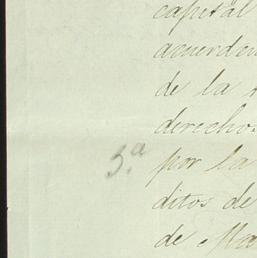 capital
acuerdan
de la
derechos
3.ª por la
ditos de
de Ma